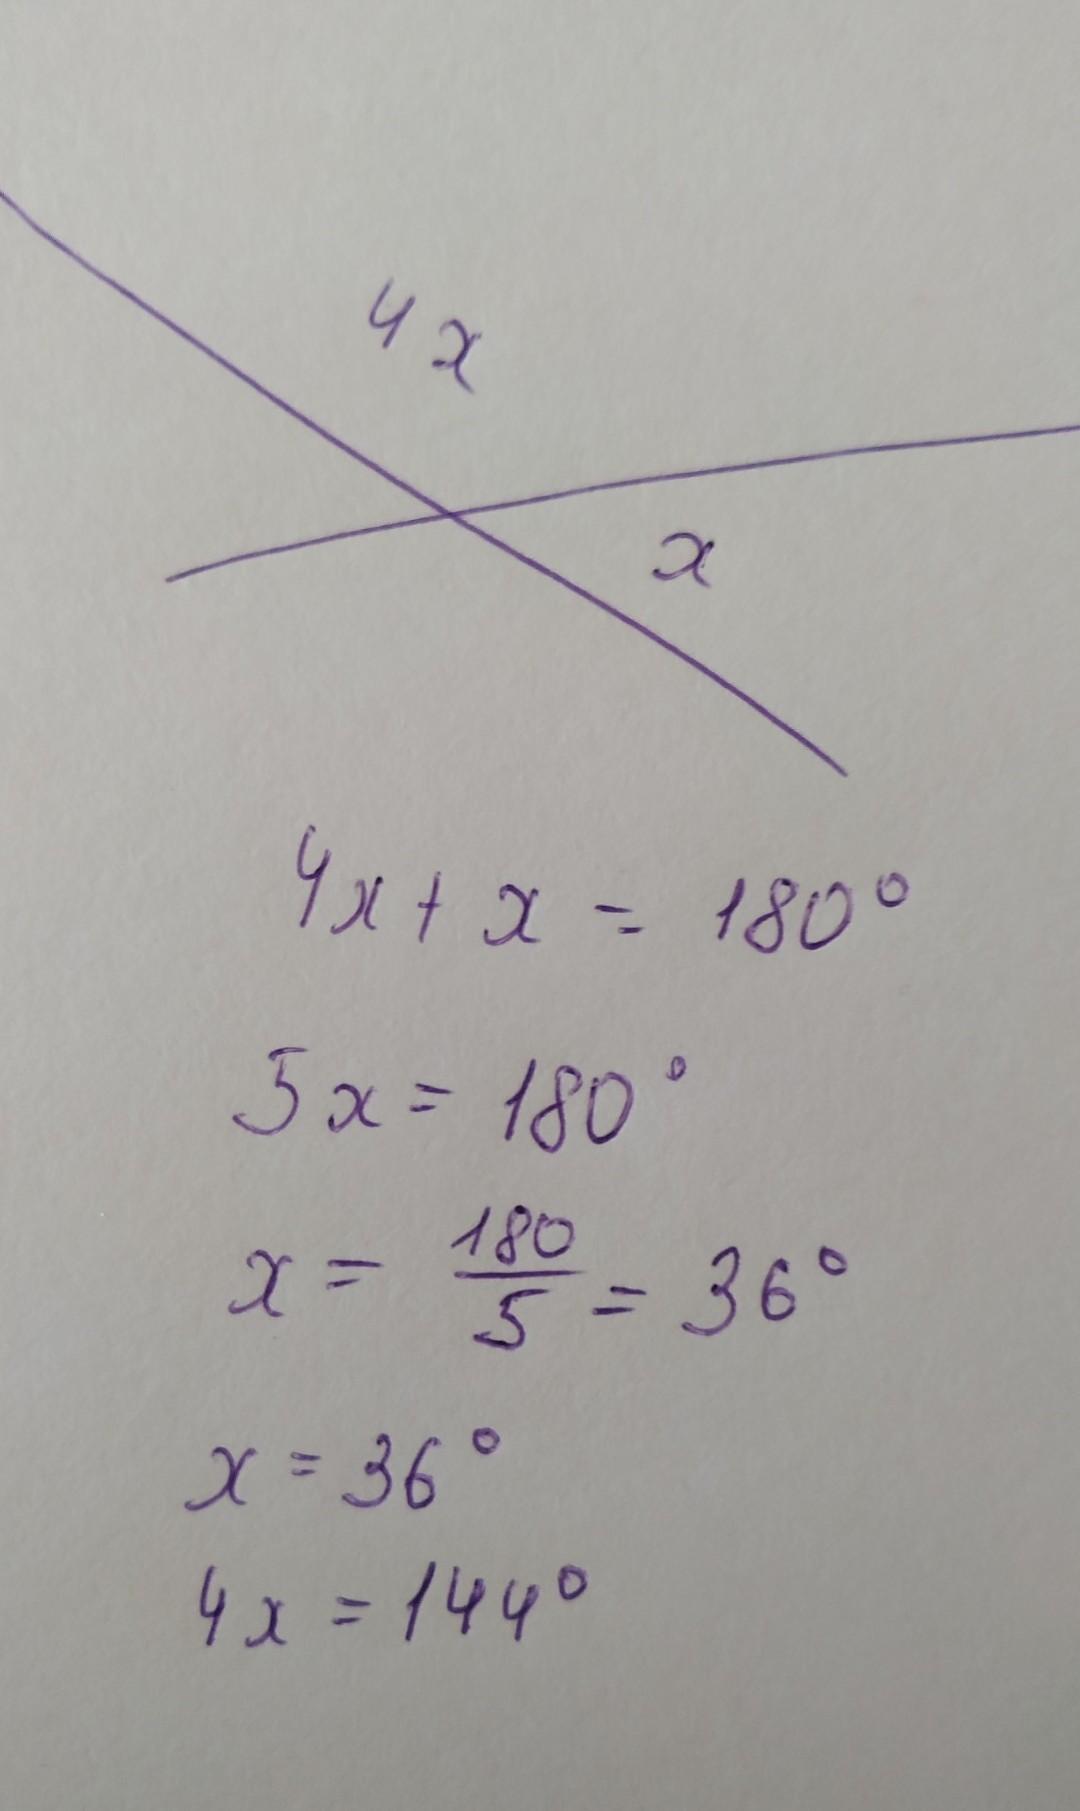 4x
x
4x + x = 180°
5x = 180°
x = 180/5 = 36°
x = 36°
4x = 144°